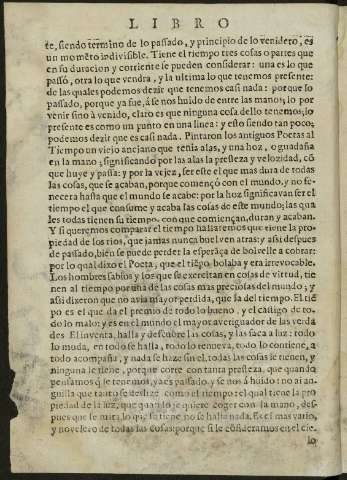 LIBRO
te, siendo termino de lo passado, y principio de lo venidero, es
un momẽto indivisible. Tiene el tiempo tres cosas o partes que
en su duracion y corriente se pueden considerar: una es lo que
passó, otra lo que vendra, y la ultima lo que tenemos presente:
de las quales podemos dezir que tenemos casi nada: porque lo
passado, porque ya fue, á se nos huido de entre las manos; lo por
venir sino à venido, claro es que ninguna cosa dello tenemos; lo
presente es como un punto en una linea: y esto siendo tan poco,
podemos dezir que es casi nada. Pintaron los antiguos Poetas al
Tiempo un viejo anciano que tenia alas, y una hoz, o guadaña
en la mano; significando por las alas la presteza y velozidad, cõ
que huye y passa: y por la vejez, ser este el que mas dura de todas
las cosas, que se acaban, porque començó con el mundo, y no fe-
necera hasta que el mundo se acabe: por la hoz significavan ser el
tiempo el que consume y acaba las cosas de este mundo; las qua
les todas tienen su tiempo, con que comiençan, duran y acaban.
Y si queremos comparar el tiempo hallaremos que tiene la pro-
piedad de los rios, que jamas nunca buelven atras: y assi despues
de passado, bien se puede perder la esperãça de bolvelle a cobrar:
por lo qual dixo el Poeta, que el tiẽpo bolaba y era irrevocable.
Los hombres sabios y los que se exercitan en cosas de virtud, tie
nen al tiempo por una de las cosas mas preciosas del mundo; y
assi dixeron que no avia mayor perdida, que la del tiempo. El tiẽ
po es el que da el premio de todo lo bueno, y el castigo de to-
do lo malo: y es en el mundo el mayor averiguador de las verda
des. El inventa, halla y descubre las cosas, y las saca a luz: todo
lo muda, en todo se halla, todo lo renueva, todo lo contiene, a
todo acompaña, y nada se haze sin el, todas las cosas le tienen, y
ninguna le tiene, porque corre con tanta presteza, que quando
pensamos q̃ le tenemos, ya es passado, y se nos á huido: no ai an-
guilla que tanto se deslize como el tiempo: el qual tiene la pro
piedad de la luz, que quando se quiere coger con la mano, des-
pues que se mira lo que se tiene no se halla nada. Es el mas vario,
y novelero de todas las cosas: porque si le cõsideramos en el cie-
lo